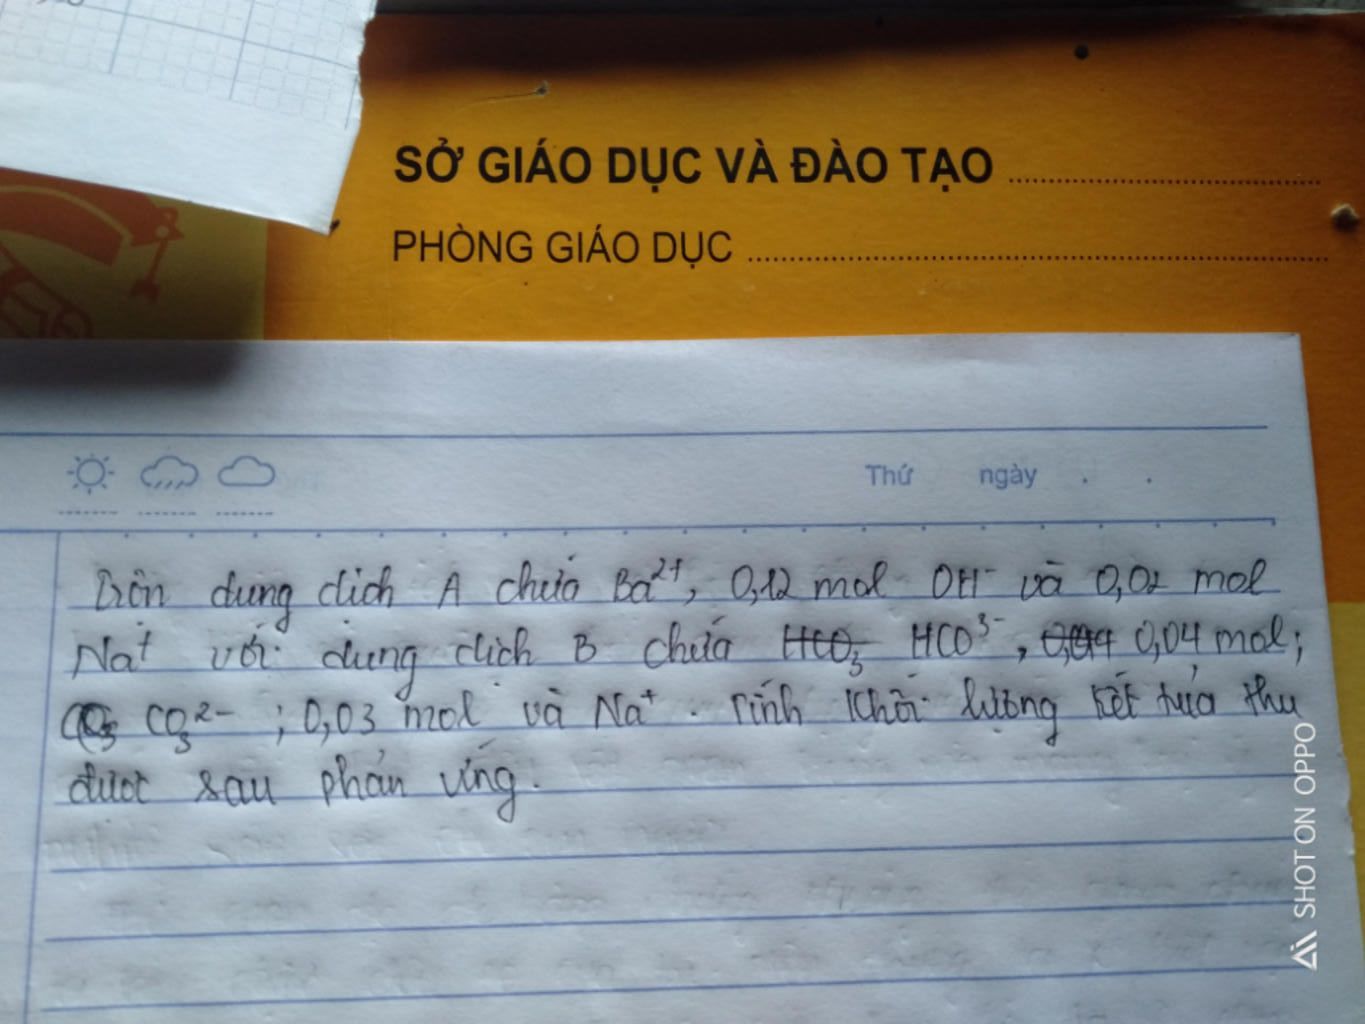 SỞ GIÁO DỤC VÀ ĐÀO TẠO
PHÒNG GIÁO DỤC
Thứ ngày . .
Trộn dung dịch A chứa Ba²⁺, 0,12 mol OH⁻ và 0,02 mol
Na⁺ với dung dịch B chứa HCO₃ HCO³⁻, 0,04 mol;
CO₃²⁻ ; 0,03 mol và Na⁺. Tính khối lượng kết tủa thu
được sau phản ứng.
SHOT ON OPPO